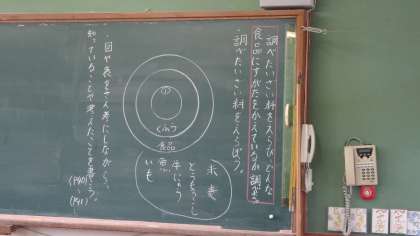 調べたいざい料をえらび、どんな
食品にすがたをかえているか調べよう
・調べたいざい料をえらぼう。
①
くふう
食品
米 麦
とうもろこし
牛にゅう
魚
いも
・図や表をさん考にしながら、
知っていることや考えたことを書こう。